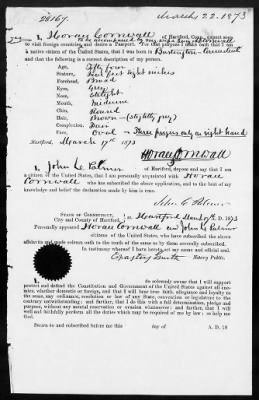 28167.
March 22. 1873
I, Horace Cornwall of Hartford, Conn., about
to be accompanied by my wife
to visit foreign countries, and desire a Passport. For this purpose I make oath that I am
a native citizen of the United States, that I was born in Burlington Connecticut
and that the following is a correct description of my person:
Age, Fifty four
Stature, Five feet eight inches
Forehead, Broad
Eyes, Grey
Nose, Straight
Mouth, Medium
Chin, Round
Hair, Brown (slightly gray)
Complexion, Fair
Face, Oval Three fingers only on right hand
Hartford, March 17th 1873
Horace Cornwall
I, John C. Palmer of Hartford, depose and say that I am
a citizen of the United States, that I am personally acquainted with Horace
Cornwall who has subscribed the above application, and to the best of my
knowledge and belief the declaration made by him is true.
John C. Palmer
State of Connecticut,
City and County of Hartford. Hartford March 17th A.D. 1873
Personally appeared Horace Cornwall and John C. Palmer
citizens of the United States, who have subscribed the above
affidavits and made solemn oath to the truth of the same as by them severally subscribed.
In testimony whereof I have hereunto set my name and official seal.
Smith
Notary Public.
do solemnly swear that I will support
protect and defend the Constitution and Government of the United States against all enemies,
whether domestic or foreign, and that I will bear true faith, allegiance and loyalty to
the same, any ordinance, resolution or law of any State, convention or legislature to the
contrary notwithstanding; and further, that I do this with a full determination, pledge and
purpose, without any mental reservation or evasion whatsoever; and further, that I will
well and faithfully perform all the duties which may be required of me by law: so help me
God.
Sworn to and subscribed before me this day of A. D. 18